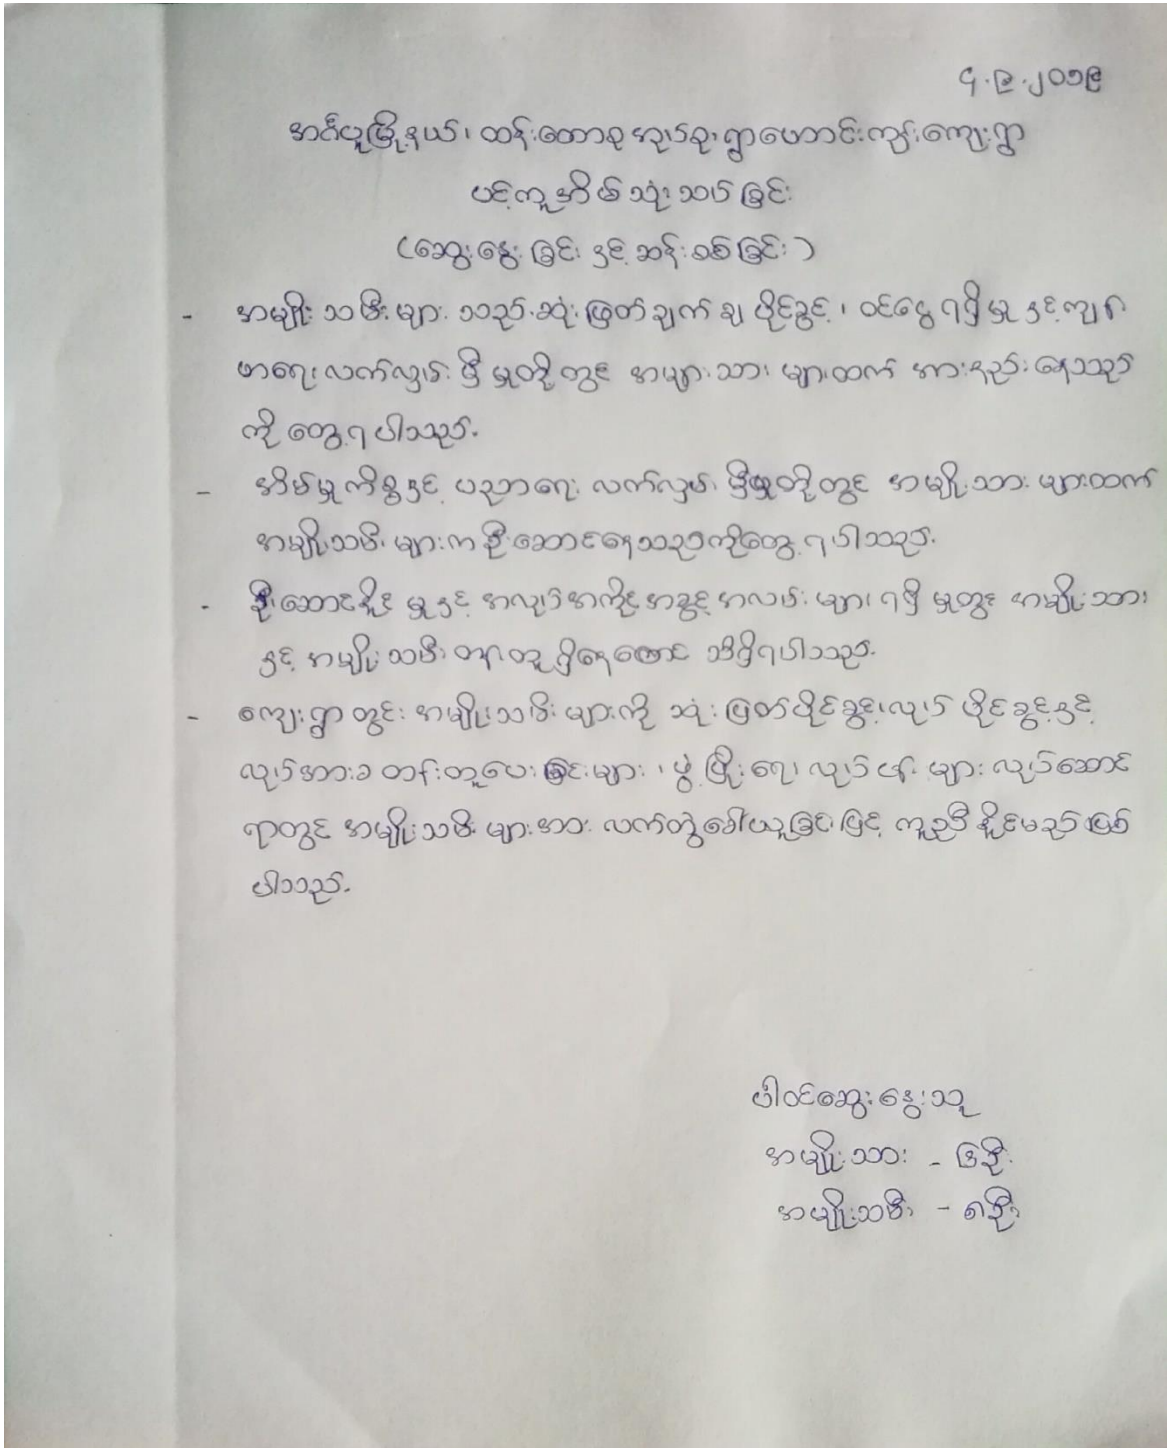 ၄.၉.၂၀၁၉
အင်္ဂပူမြို့နယ်၊ ထန်းတောစု အုပ်စု၊ ရွာဟောင်းကျွန်းကျေးရွာ
ပင့်ကူအိမ် သုံးသပ်ခြင်း
(ဆွေးနွေးခြင်း နှင့် ဆန်းစစ်ခြင်း)
- အမျိုးသမီးများ သည် ဆုံးဖြတ်ချက်ချပိုင်ခွင့်၊ ဝင်ငွေရရှိမှု နှင့် ကျန်း
မာရေး လက်လှမ်းမှီမှုတို့တွင် အမျာသားများထက် အားနည်းနေသည်
ကို တွေ့ရပါသည်.
- အိမ်မှုကိစ္စနှင့် ပညာရေး လက်လှမ်းမှီမှုတို့တွင် အမျိုးသားများထက်
အမျိုးသမီးများက ဦးဆောင်နေသည်ကိုတွေ့ရပါသည်.
- ဦးဆောင်နိုင်မှုနှင့် အလုပ်အကိုင်အခွင့်အလမ်းများရရှိမှုတွင် အမျိုးသား
နှင့် အမျိုးသမီး တန်းတူရှိနေကြောင်း သိရှိရပါသည်.
- ကျေးရွာတွင်း အမျိုးသမီးများကို ဆုံးဖြတ်ပိုင်ခွင့်၊ လုပ်ပိုင်ခွင့်နှင့်
လုပ်အားခ တန်းတူပေးခြင်းများ၊ ဖွံ့ဖြိုးရေးလုပ်ငန်းများ လုပ်ဆောင်
ရာတွင် အမျိုးသမီးများအား လက်တွဲခေါ်ယူခြင်းဖြင့် ကူညီနိုင်မည်ဖြစ်
ပါသည်.
ပါဝင်ဆွေးနွေးသူ
အမျိုးသား - ဦး
အမျိုးသမီး - ၈ဦး